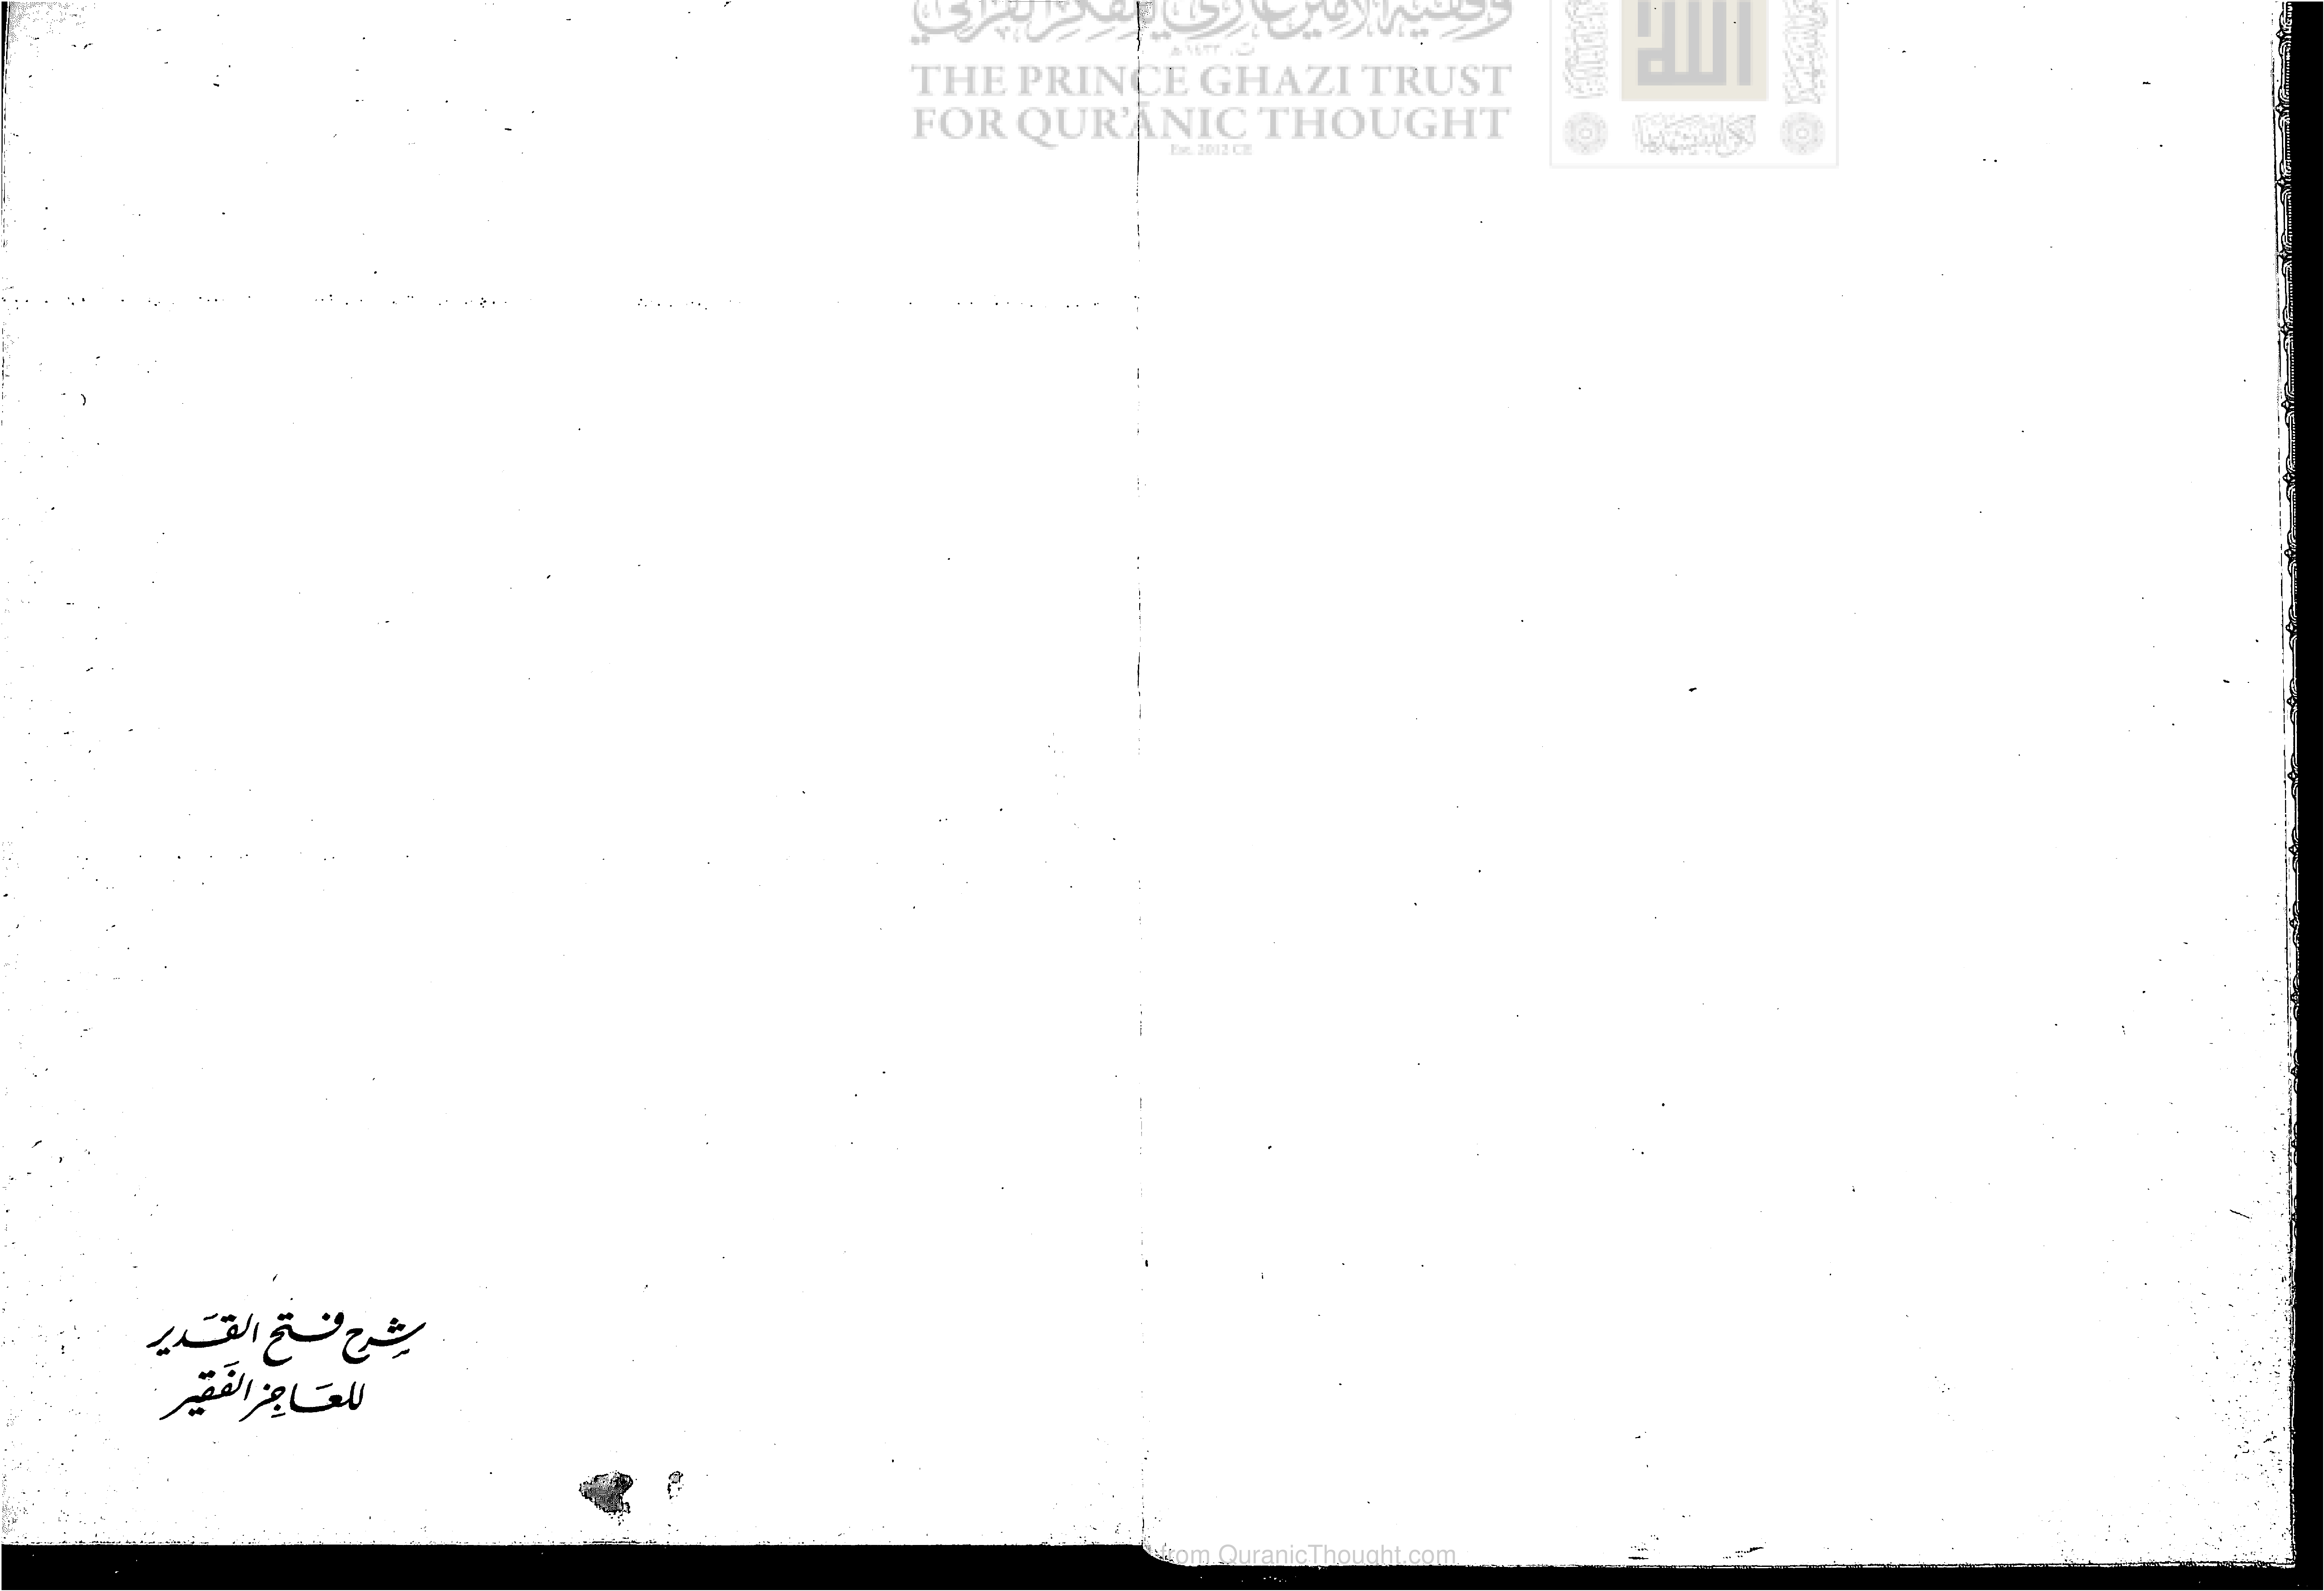 وقفية الأمير غازي للفكر القرآني
THE PRINCE GHAZI TRUST
FOR QUR'ĀNIC THOUGHT
Est. 2012 CE
الله
شِرح فتح القَدير
للعَاجِز الفَقير
from QuranicThought.com